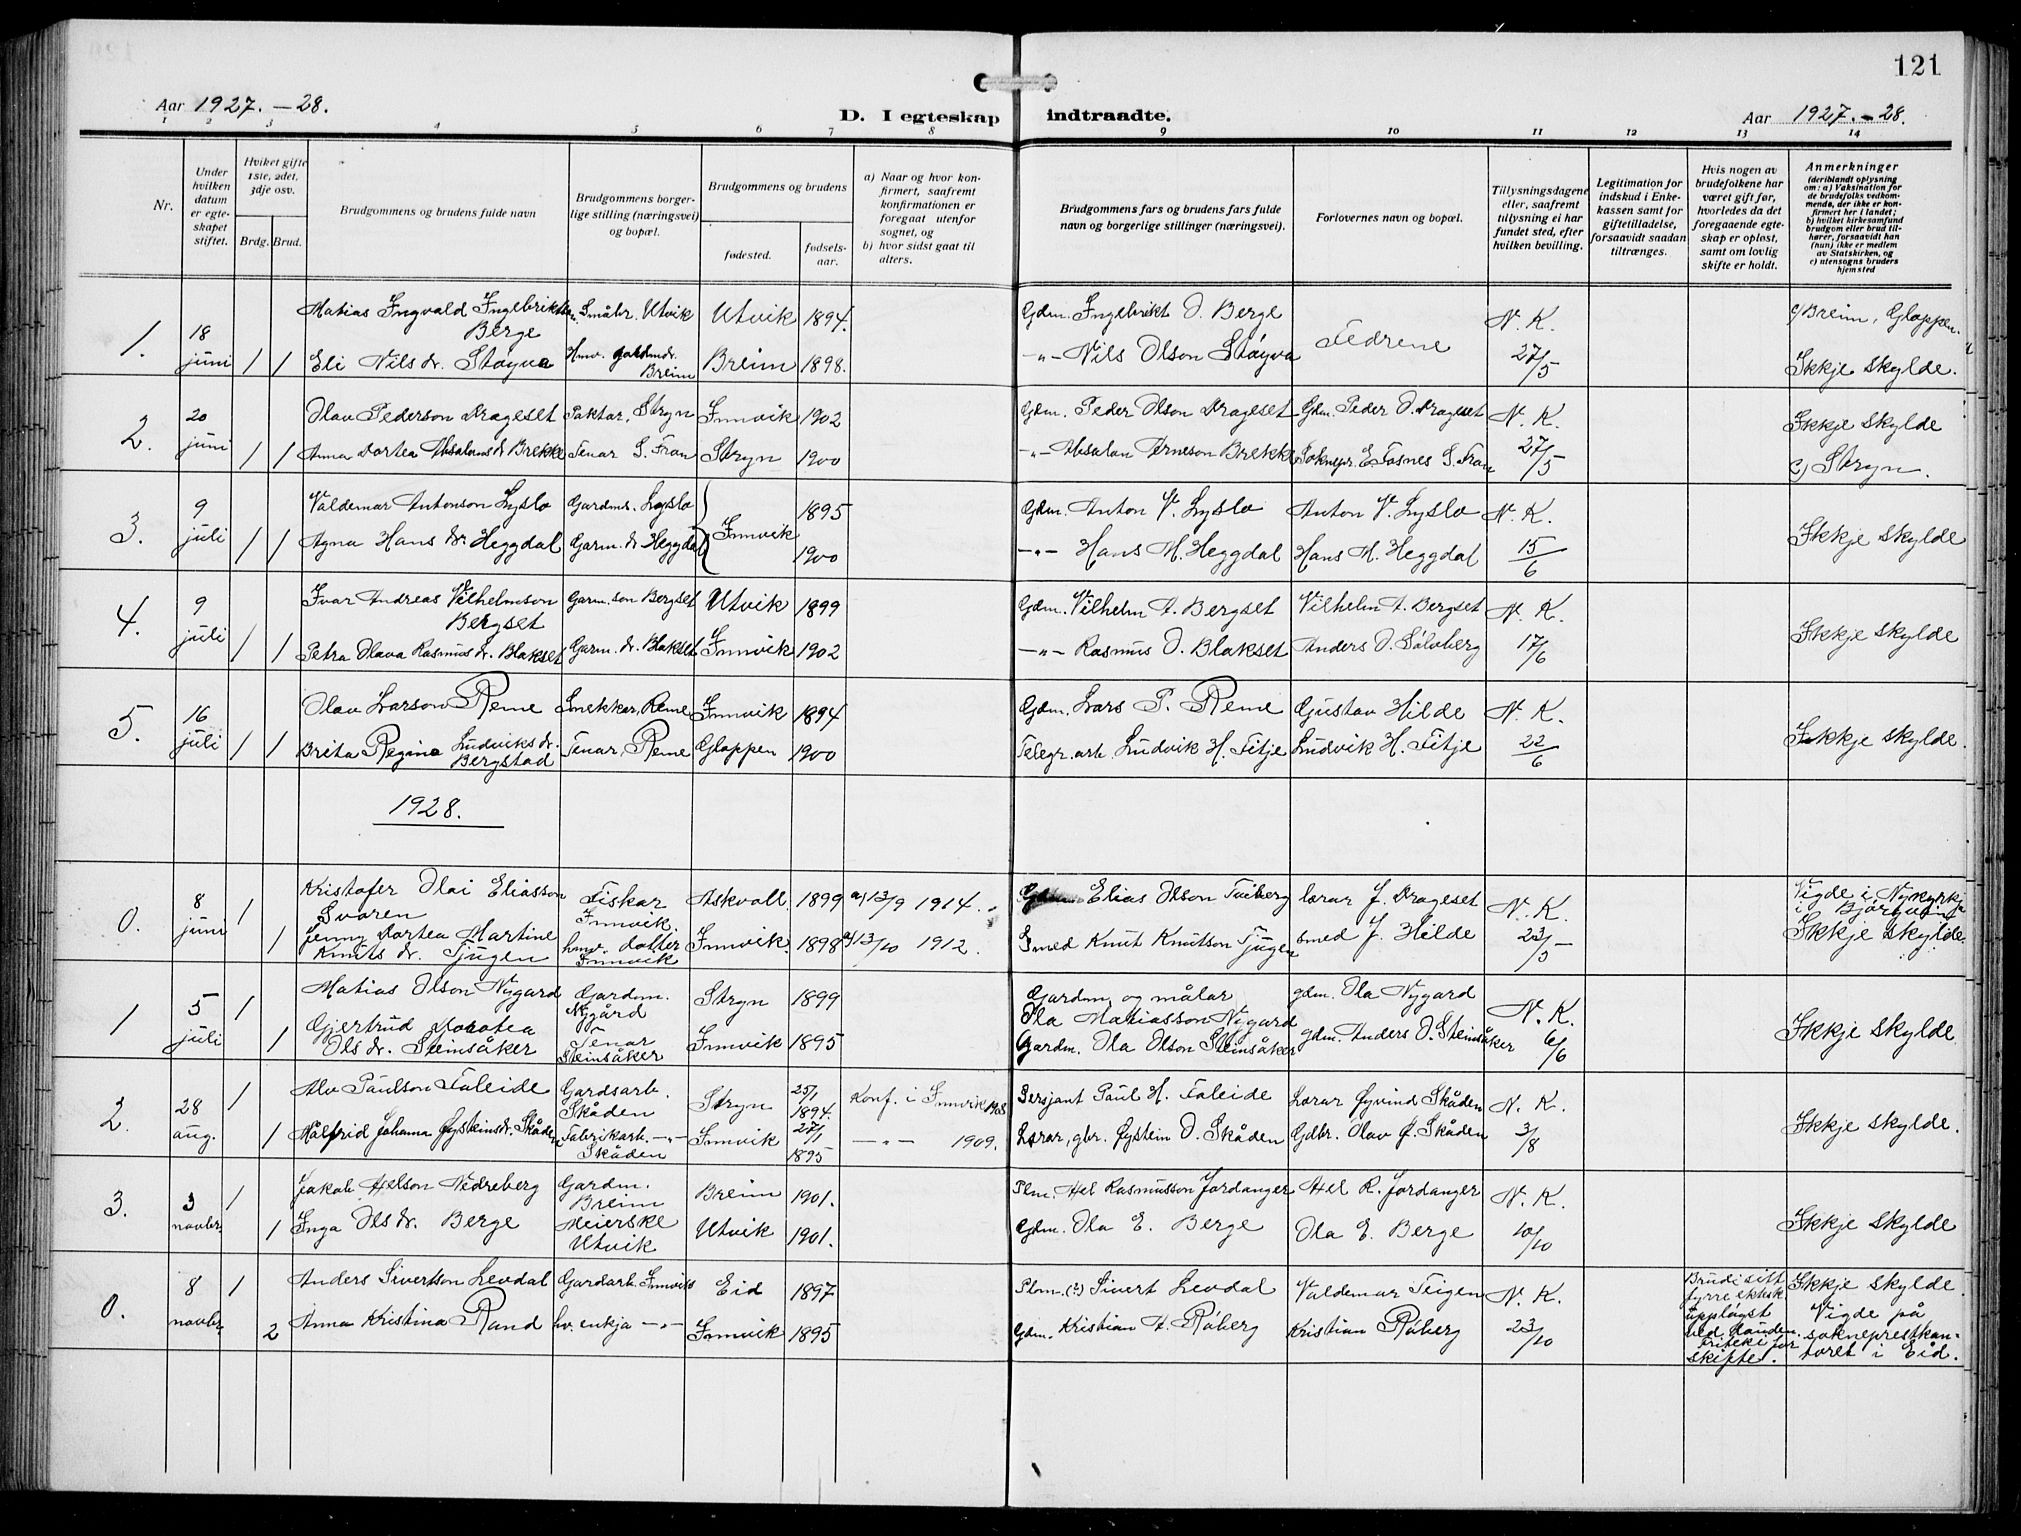 121
Aar 1927.-28.
D. I egteskap indtraadte.
Aar 1927.-28.
1 2 3 4 5 6 7 8 9 10 11 12 13 14
Nr.
Under hvilken datum er egteskapet stiftet.
Hvilket gifte 1ste, 2det, 3dje osv.
Brdg. Brud.
Brudgommens og brudens fulde navn
Brudgommens borgerlige stilling (næringsvei) og bopæl.
Brudgommens og brudens
fødested.
fødselsaar.
a) Naar og hvor konfirmert, saafremt konfirmationen er foregaat utenfor sognet, og
b) hvor sidst gaat til alters.
Brudgommens fars og brudens fars fulde navn og borgerlige stillinger (næringsvei).
Forlovernes navn og bopæl.
Tillysningsdagene eller, saafremt tillysning ei har fundet sted, efter hvilken bevilling.
Legitimation for indskud i Enkekassen samt for giftetilladelse, forsaavidt saadan tiltrænges.
Hvis nogen av brudefolkene har været gift før, hvorledes da det foregaaende egteskap er opløst, samt om lovlig skifte er holdt.
Anmerkninger
(deriblandt oplysning om: a) Vaksination for de brudefolks vedkommende, der ikke er konfirmert her i landet; b) hvilket kirkesamfund brudgom eller brud tilhører, forsaavidt han (hun) ikke er medlem av Statskirken, og c) utensogns bruders hjemsted
1. 18 juni 1 1
Matias Ingvald Ingebriktson Berge Småbr. Utvik Utvik 1894. Gdm. Ingebrikt O. Berge Fedrene N. K. 27/5 c) Breim, Gloppen.
Eli Nilsdr. Støyva Hmv. gardmdr. Breim Breim 1898. -"- Nils Olson Støyva Ikkje skylde.
2. 20 juni 1 1
Olav Pederson Drageset Paktar, Stryn Innvik 1902 Gdm. Peder Olson Drageset Gdm. Peder O. Drageset N. K. 27/5 Ikkje skylde
Anna Dortea Absalonsdr Brekke Tenar S. Fron Stryn 1900 -"- Absalon Arneson Brekke Soknepr. E. Fosnes S. Fron c) Stryn.
3. 9 juli 1 1
Valdemar Antonson Lyslo Gardmd. Lyslo Innvik 1895 Gdm. Anton V. Lyslo Anton V. Lyslo N. K. 15/6
Agna Hansdr. Heggdal Garm. dr Heggdal 1900 -"- Hans M. Heggdal Hans M. Heggdal Ikkje skylde
4. 9 juli 1 1
Ivar Andreas Vilhelmson Bergset Garm. son Bergset Utvik 1899 Gdm. Vilhelm A. Bergset Vilhelm A. Bergset N. K. 17/6
Petra Olava Rasmusdr. Blakset Garm. dr. Blakset Innvik 1902 -"- Rasmus O. Blakset Anders O. Sølvberg Ikkje skylde
5. 16 juli 1 1
Olav Larson Reme Snekkar, Reme Innvik 1894 Gdm. Lars P. Reme Gustav Hilde N. K. 22/6
Brita Regine Ludviksdr. Bergstad Tenar, Reme Gloppen 1900 Telegr. arb. Ludvik H. Fitje Ludvik H. Fitje Ikkje skylde.
1928.
0. 8 juni 1
Kristofer Olai Eliasson Svoren Fiskar Innvik Askvoll. 1899 a) 13/9 1914. Elias Olson lærar J. Drageset N. K. 23/5 Vigde i Nykyrkja i Bjørgvin
1 Jenny Dortea Martine Knutsdr. Tjugen hmv. dotter Innvik Innvik 1898 a) 13/10 1912. Smed Knut Knutson Tjugen smed J. Hilde Ikkje skylde
1 5 juli 1
Matias Olson Nygard Gardm. Nygård Stryn 1899 Gardm. og målar Ola Matiasson Nygard gdm. Ola Nygard N. K. 6/6
1 Gjertrud Dorotea Olsdr. Steinsåker Tenar Steinsåker Innvik 1895 Gardm. Ola Olson Steinsåker gdm. Anders O. Steinsåker Ikkje skylde.
2. 28 aug. 1
Alv Paulson Faleide Gardsarb. Skåden Stryn 25/1 1894. Konf. i Innvik 1908 Sersjant Paul H. Faleide Lærar Øyvind Skåden N. K. 3/8
1 Målfrid Johanna Øysteinsdr. Skåden Fabrikarb. -"- Skåden Innvik 27/1 1895 -"- 1909. Lærar, gbr. Øystein O. Skåden Gdbr. Olav Ø. Skåden Ikkje skylde.
3. 3 novbr. 1
Jakob Helson Nedreberg Gardm. Breim Breim 1901. Plm. Hel Rasmusson Jordanger Hel R. Jordanger N. K. 10/10
1 Inga Olsdr. Berge Meierske Utvik Utvik 1901. Gdm. Ola E. Berge Ola E. Berge Ikkje skylde
0. 8 novbr. 1
Anders Sivertson Levdal Gardarb. Innvik Eid 1897 Plm. (?) Sivert Levdal Valdemar Teigen N. K. 23/10
2 Anna Kristina Rand hv. enkja -"- Innvik 1895 Gdm. Kristian A. Røberg Kristian Røberg
Brudi sitt fyrre ektesk. uppløyst ved dauden. Friteki for skifte.
Ikkje skylde. Vigde på sokneprestkontoret i Eid.